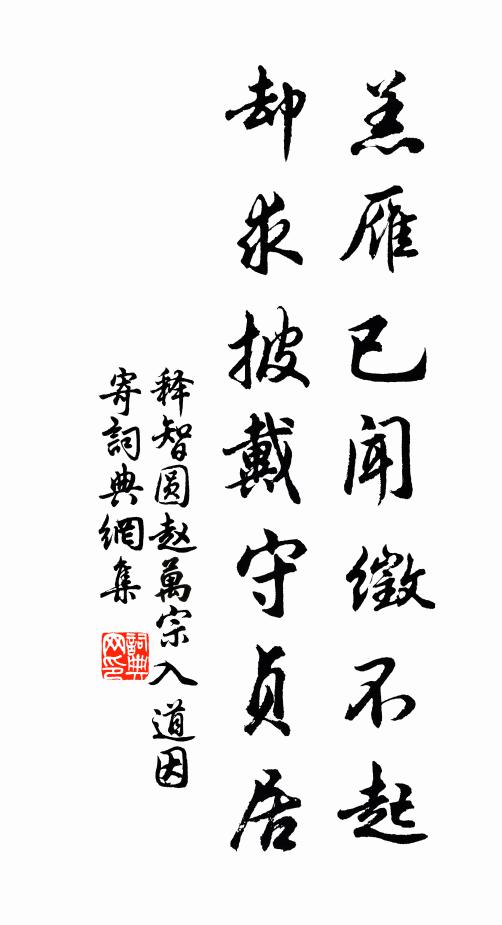 羔雁已聞徵不起
却求披戴守貞居
释智圆赵萬宗入道因
寄詞典網集
詞典網印